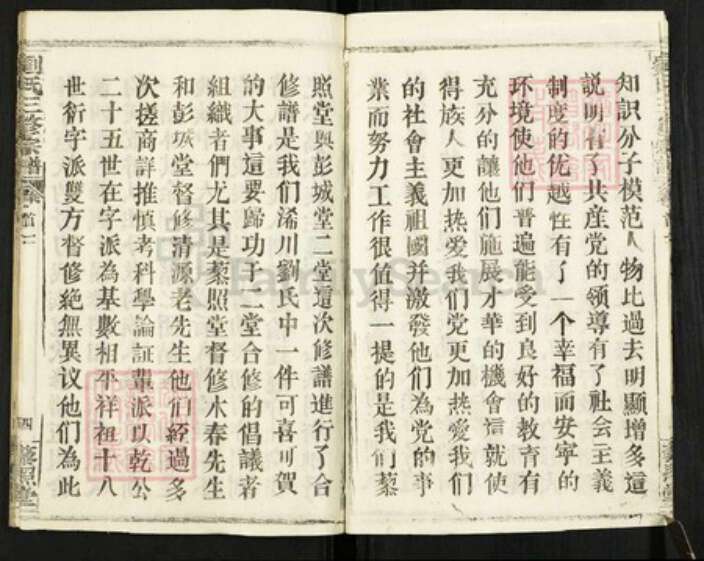 知識分子模范人物比過去明顯增多這
説明有了共産党的領導有了社会主義
制度的优越性有了一个幸福而安寧的
环境使他们普遍能受到良好的教育有
充分的讓他们施展才華的機會這就使
得族人更加热爱我们党更加热爱我们
的社會主義祖國并激發他们為党的事
業而努力工作很值得一提的是我们藜
照堂與彭城堂二堂這次修譜進行了合
修譜是我们浠川劉氏中一件可喜可賀
的大事這要歸功于二堂合修的倡議者
組織者們尤其是藜照堂督修木春先生
和彭城堂督修清源老先生他们經過多
次搓商詳推慎考科學論証輩派以乾公
二十五世在字派為基數相平祥祖十八
世衍字派雙方督修絶無異议他们為此
劉氏三修宗譜
卷首一
四
藜照堂
FamilySearch